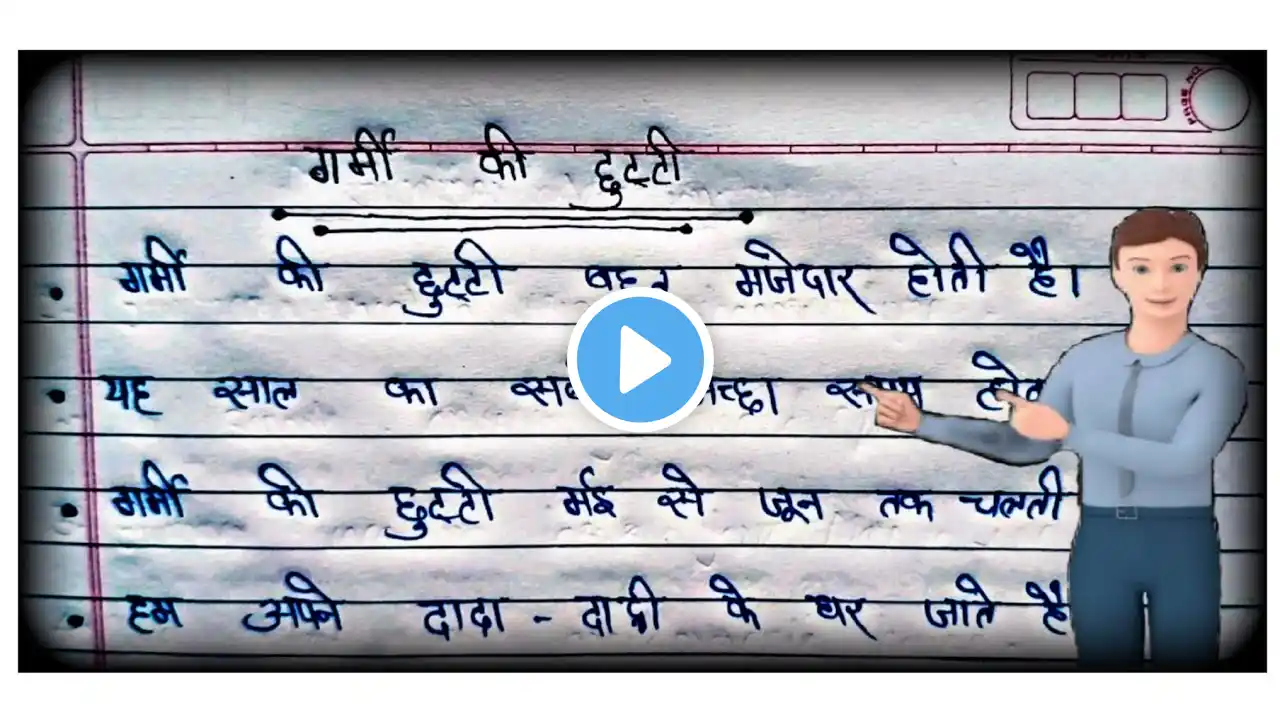 PAGE NO
गर्मी की छुट्टी
गर्मी की छुट्टी मजेदार होती है।
यह साल का
गर्मी की छुट्टी मई से जून तक चलती
हम अपने दादा - दादी के घर जाते है